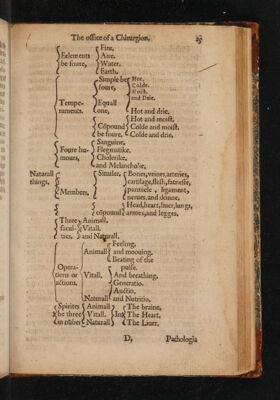 The office of a Chirurgion.
Fire,
Eelements Aire,
be foure, Water.
Earth.
Simple be Hot.
foure, Colde.
Moist.
and Drie.
Tempe- Equall
raments. one, Hot and drie.
Hot and moist.
Cõpound Colde and moist.
be foure. Colde and drie.
Sanguine.
Foure hu- Flegmatike.
mours, Cholerike.
and Melancholie.
Naturall Similer. Bones, veines, arteries,
things, cartilage, flesh, fatnesse,
pannicle, ligament,
Members, nerues, and skinne.
Head, heart, liuer, lungs,
cõpound armes, and legges,
Three Animall,
facul- Vitall.
ties, and Naturall,
Feeling,
Animall and moouing,
Beating of the
Opera- pulse.
tions or Vitall, And breathing,
actions. Generatio.
Auctio.
Naturall and Nutritio.
Spirites Animall The braine,
be three Vitall. In The Heart,
in nũber Naturall The Liuer,
D, Pathologia